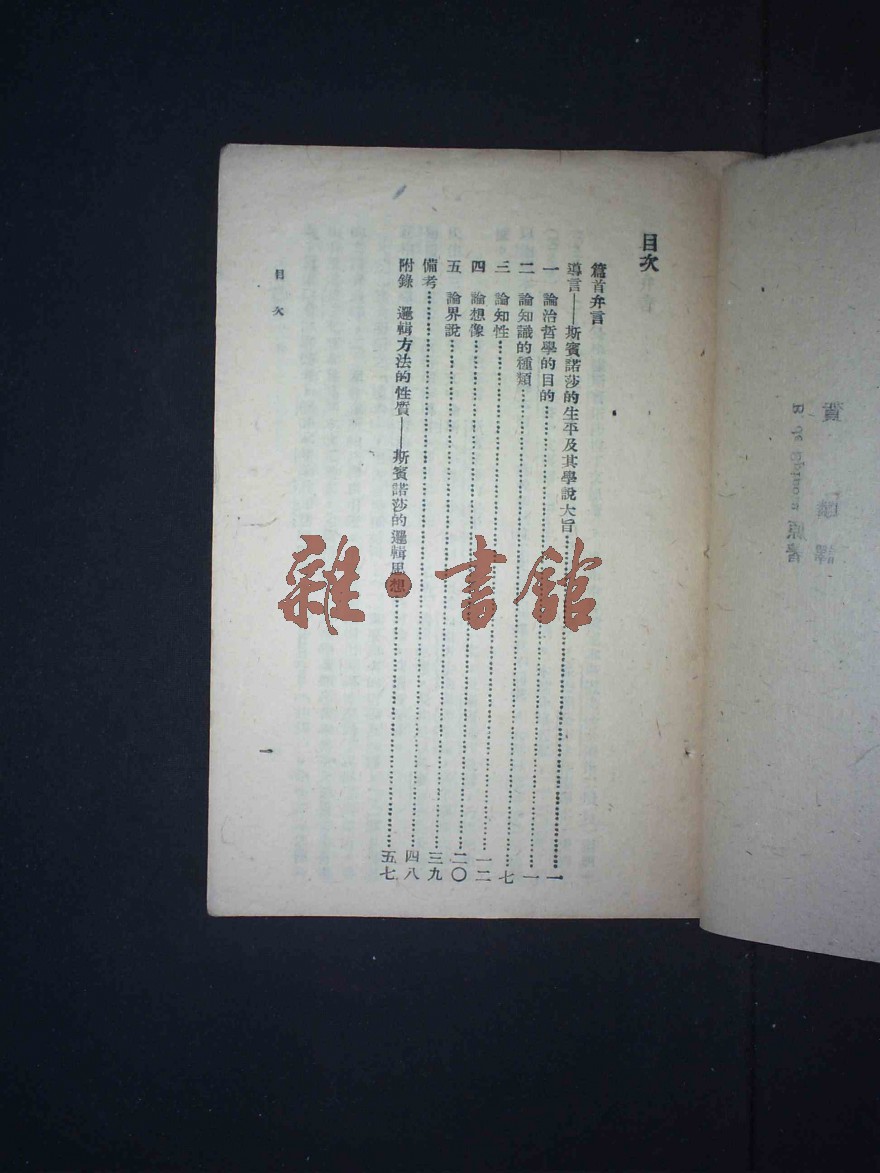 目次
篇首弁言
導言——斯賓諾莎的生平及其學說大旨……一
一　論治哲學的目的……一
二　論知識的種類……七
三　論知性……一二
四　論想像……二〇
五　論界說……三九
備考……四八
附錄　邏輯方法的性質——斯賓諾莎的邏輯思想……五七
目次
一
雜·書館